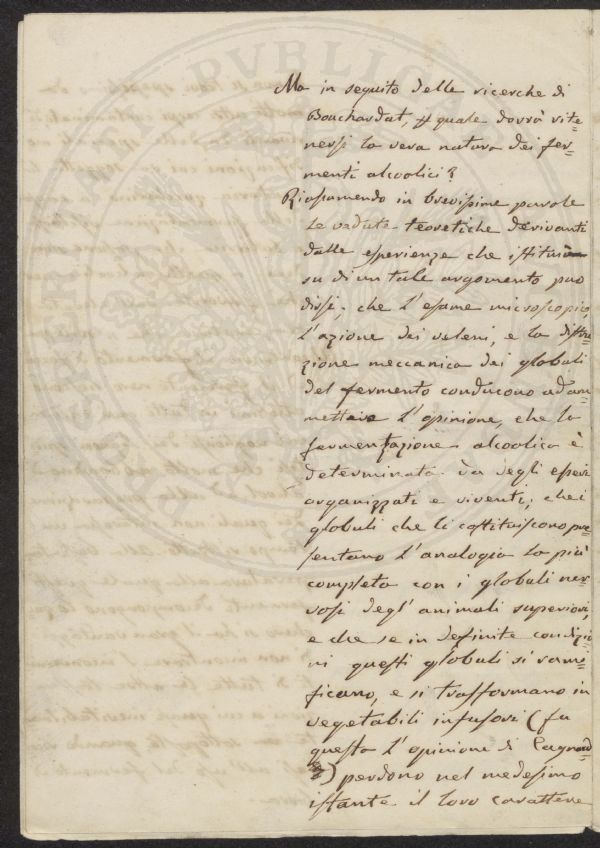 Ma in seguito delle ricerche di
Bouchardat, quale dovrà rite-
nersi la vera natura dei fer-
menti alcoolici?
Riassumendo in brevissime parole
le vedute teoretiche derivanti
dalle esperienze che istituì
su di un tale argomento può
dirsi, che l'esame microscopico,
l'azione dei veleni, e la distru-
zione meccanica dei globuli
del fermento conducono ad am-
mettere l'opinione, che la
fermentazione alcoolica è
determinata da degli esseri
organizzati e viventi; che i
globuli che li costituiscono pre-
sentano l'analogia la più
completa con i globuli ner-
vosi degl'animali superiori,
e che se in definite condizio-
ni questi globuli si rami-
ficano, e si trasformano in
vegetabili infusori (fu
questa l'opinione di Cagniard
) perdono nel medesimo
istante il loro carattere
PVBLICA